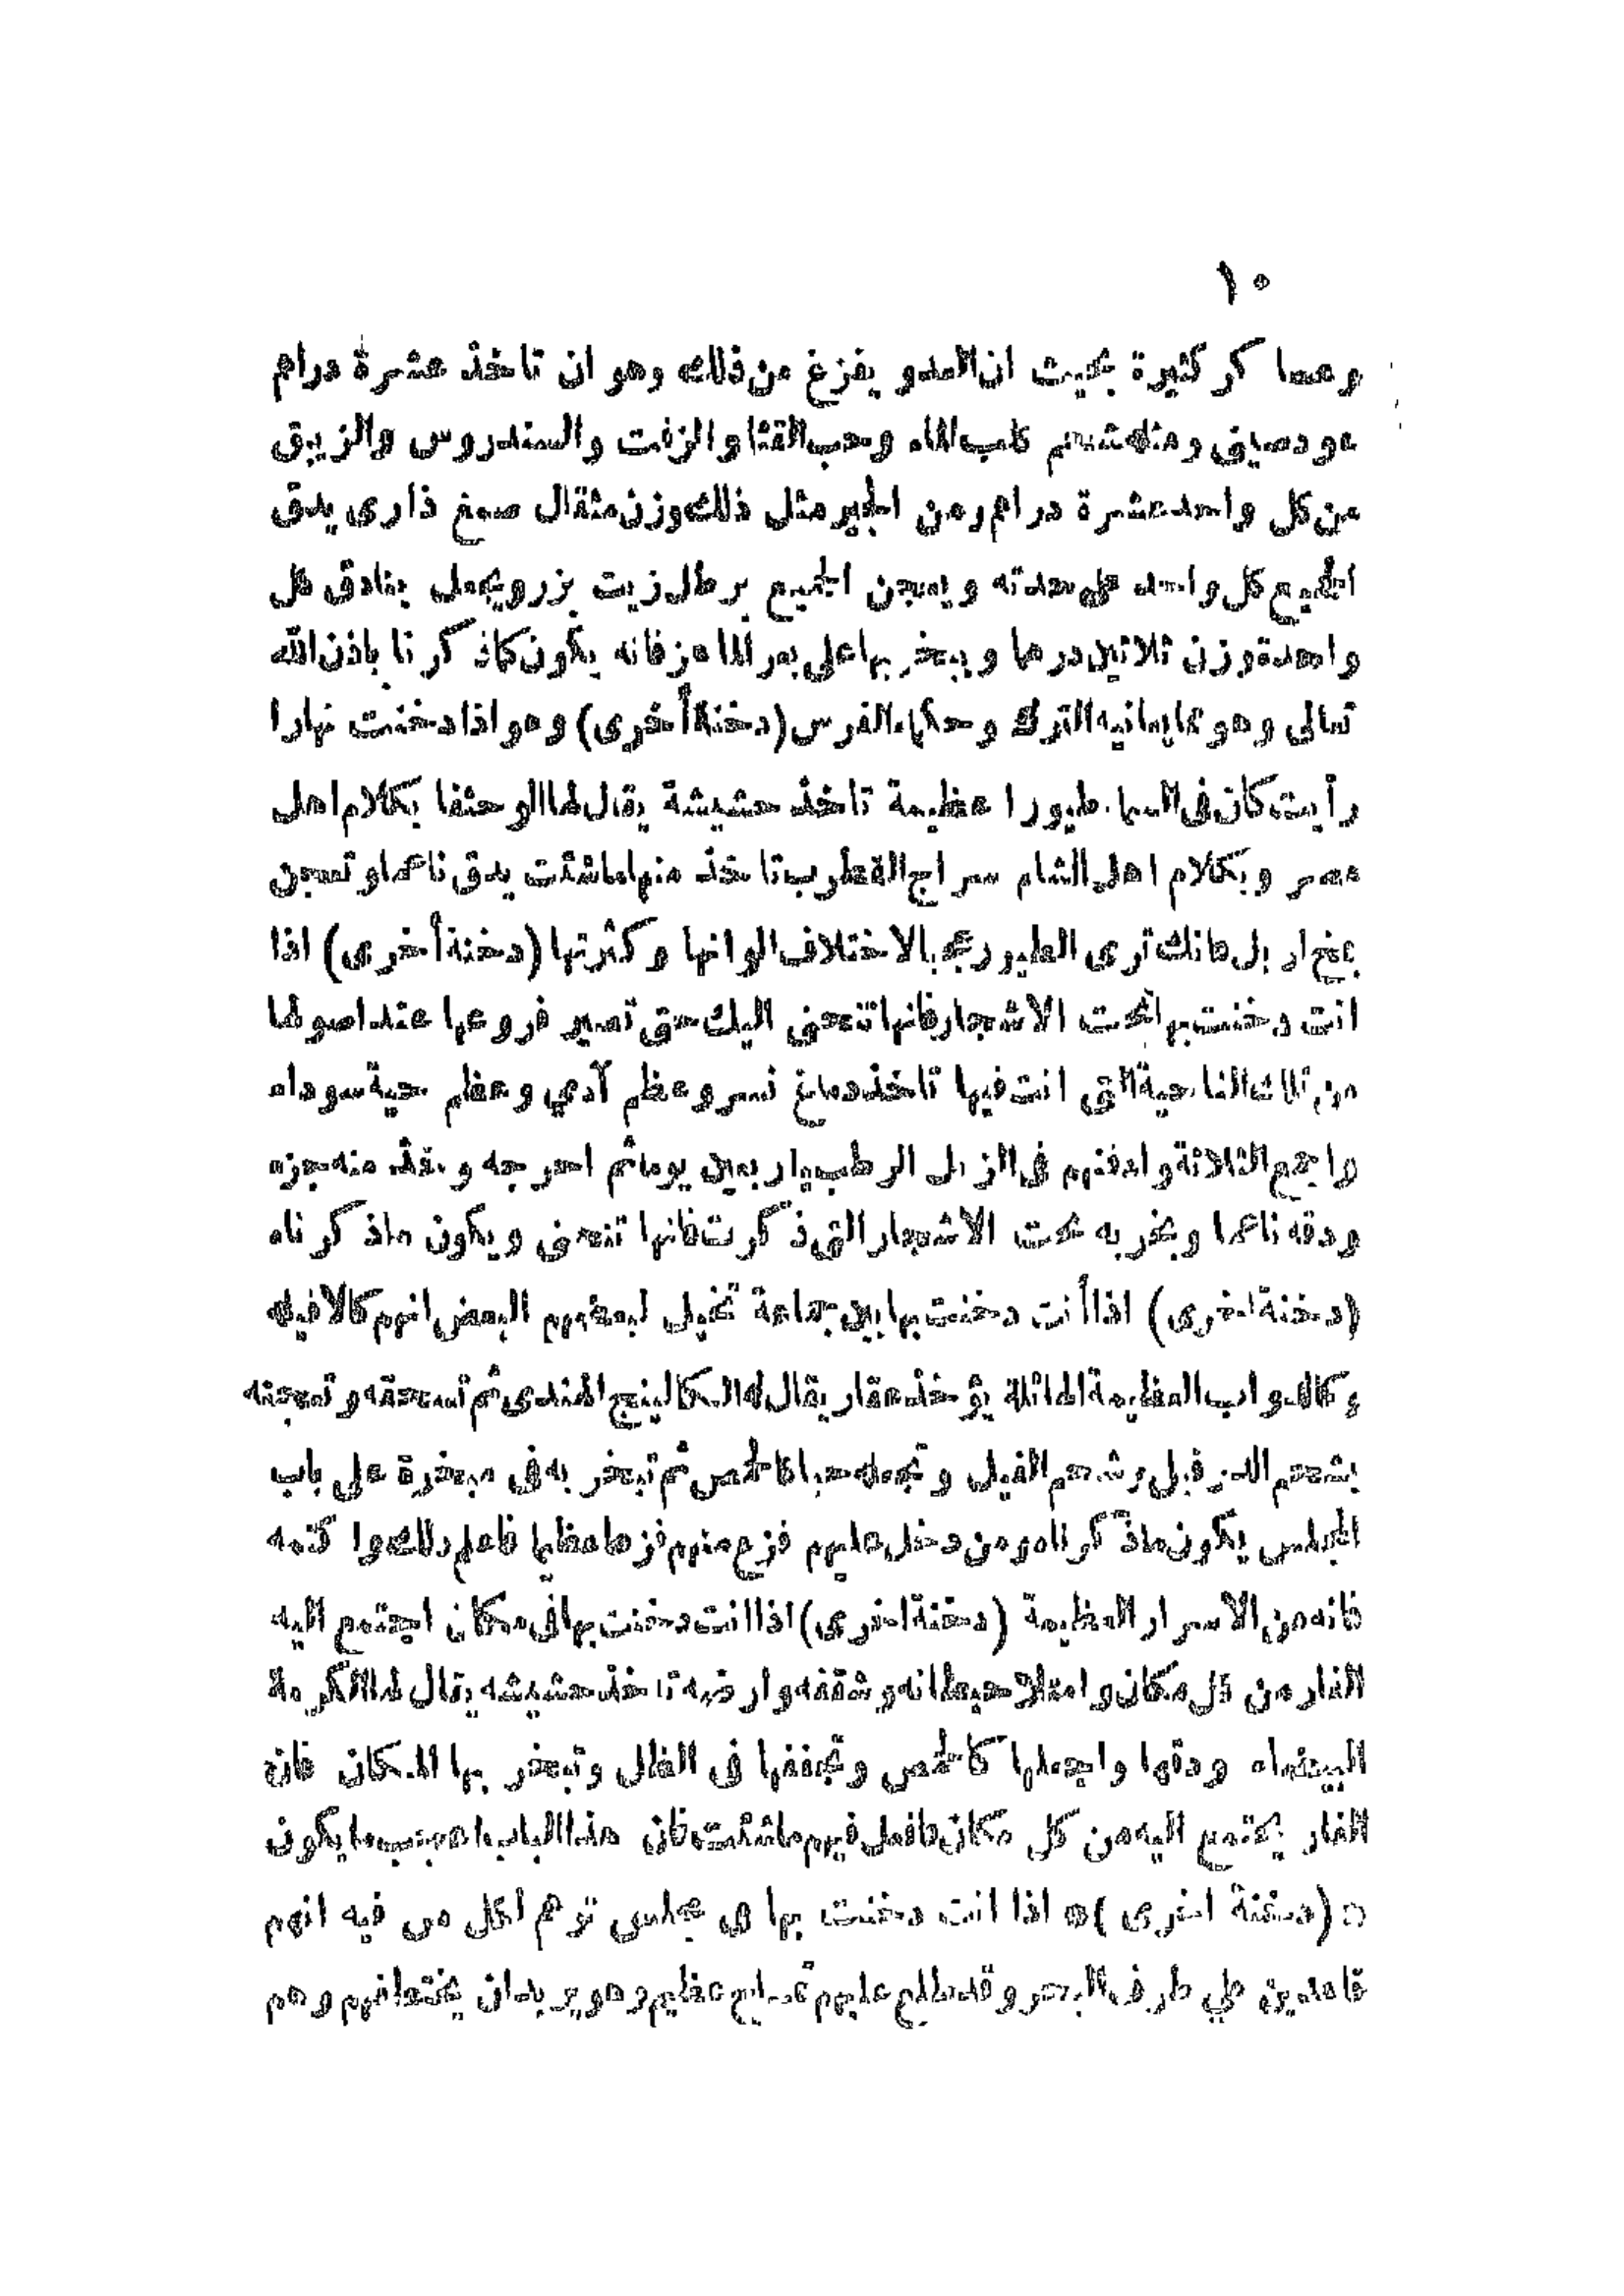 ١٠
وعساكر كثيرة بحيث ان العدو يفزع من ذلك وهو ان تاخذ عشرة دراهم
عود صيني ومثله شحم كلب الماء وحب القثا والزفت والسندروس والزيبق
من كل واحد عشرة دراهم ومن الجير مثل ذلك وزن مثقال صمغ ذارى يدق
الجميع كل واحد على حدته ويعجن الجميع برطل زيت بزر ويجعل بنادق كل
واحدة وزن ثلاثين درهما ويبخر بها على بعر الماعز فانه يكون كما ذكرنا باذن الله
تعالى وهو مما يعانيه الترك وحكماء الفرس (دخنة أخرى) وهو اذا دخنت نهارا
رأيت كان فى السما طيورا عظيمة تاخذ حشيشة يقال لها الوحثفا بكلام اهل
مصر وبكلام اهل الشام سراج القطرب تاخذ منها ماشئت يدق ناعما وتعجن
بمخ ار بل فانك ترى الطيور بالاختلاف الوانها وكثرتها (دخنة أخرى) اذا
انت دخنت بها تحت الاشجار فانها تنحنى اليك حتى تصير فروعها عند اصولها
من تلك الناحية التى انت فيها تاخذ دماغ نسر وعظم آدمي وعظم حية سوداء
واجمع الثلاثة وادفنهم فى الزبل الرطب اربعين يوما ثم اخرجه وخذ منه جزء
ودقه ناعما وبخر به تحت الاشجار التى ذكرت فانها تنحنى ويكون ماذكرناه
(دخنة اخرى) اذا أنت دخنت بها بين جماعة تخيل لبعضهم البعض انهم كالافيله
وكالدواب العظيمة الهائلة يؤخذ عقار يقال له الكالينج الهندى ثم تسحقه وتعجنه
بشحم الدرفيل وشحم الفيل وتجعله حبا كالحمص ثم تبخر به فى مبخرة على باب
المجلس يكون ماذكرناه ومن دخل عليهم فزع منهم فزعا عظيما فاعلم ذلك واكتمه
فانه من الاسرار العظيمة (دخنة اخرى) اذا انت دخنت بها فى مكان اجتمع اليه
الفار من كل مكان وامتلا حيطانه وشقفه وارضه تاخذ حشيشه يقال لها الكرمة
البيضاء ودقها واجعلها كالحمص وتجففها فى الظل وتبخر بها المكان فان
الفار يجتمع اليه من كل مكان فافعل فيهم ماشئت فان هذا الباب اعجب ما يكون
(دخنة اخرى) اذا انت دخنت بها فى مجلس توهم لكل من فيه انهم
قاعدين على طرف البحر وقد طلع عليهم تمساح عظيم وهو يريد ان يختطفهم وهم